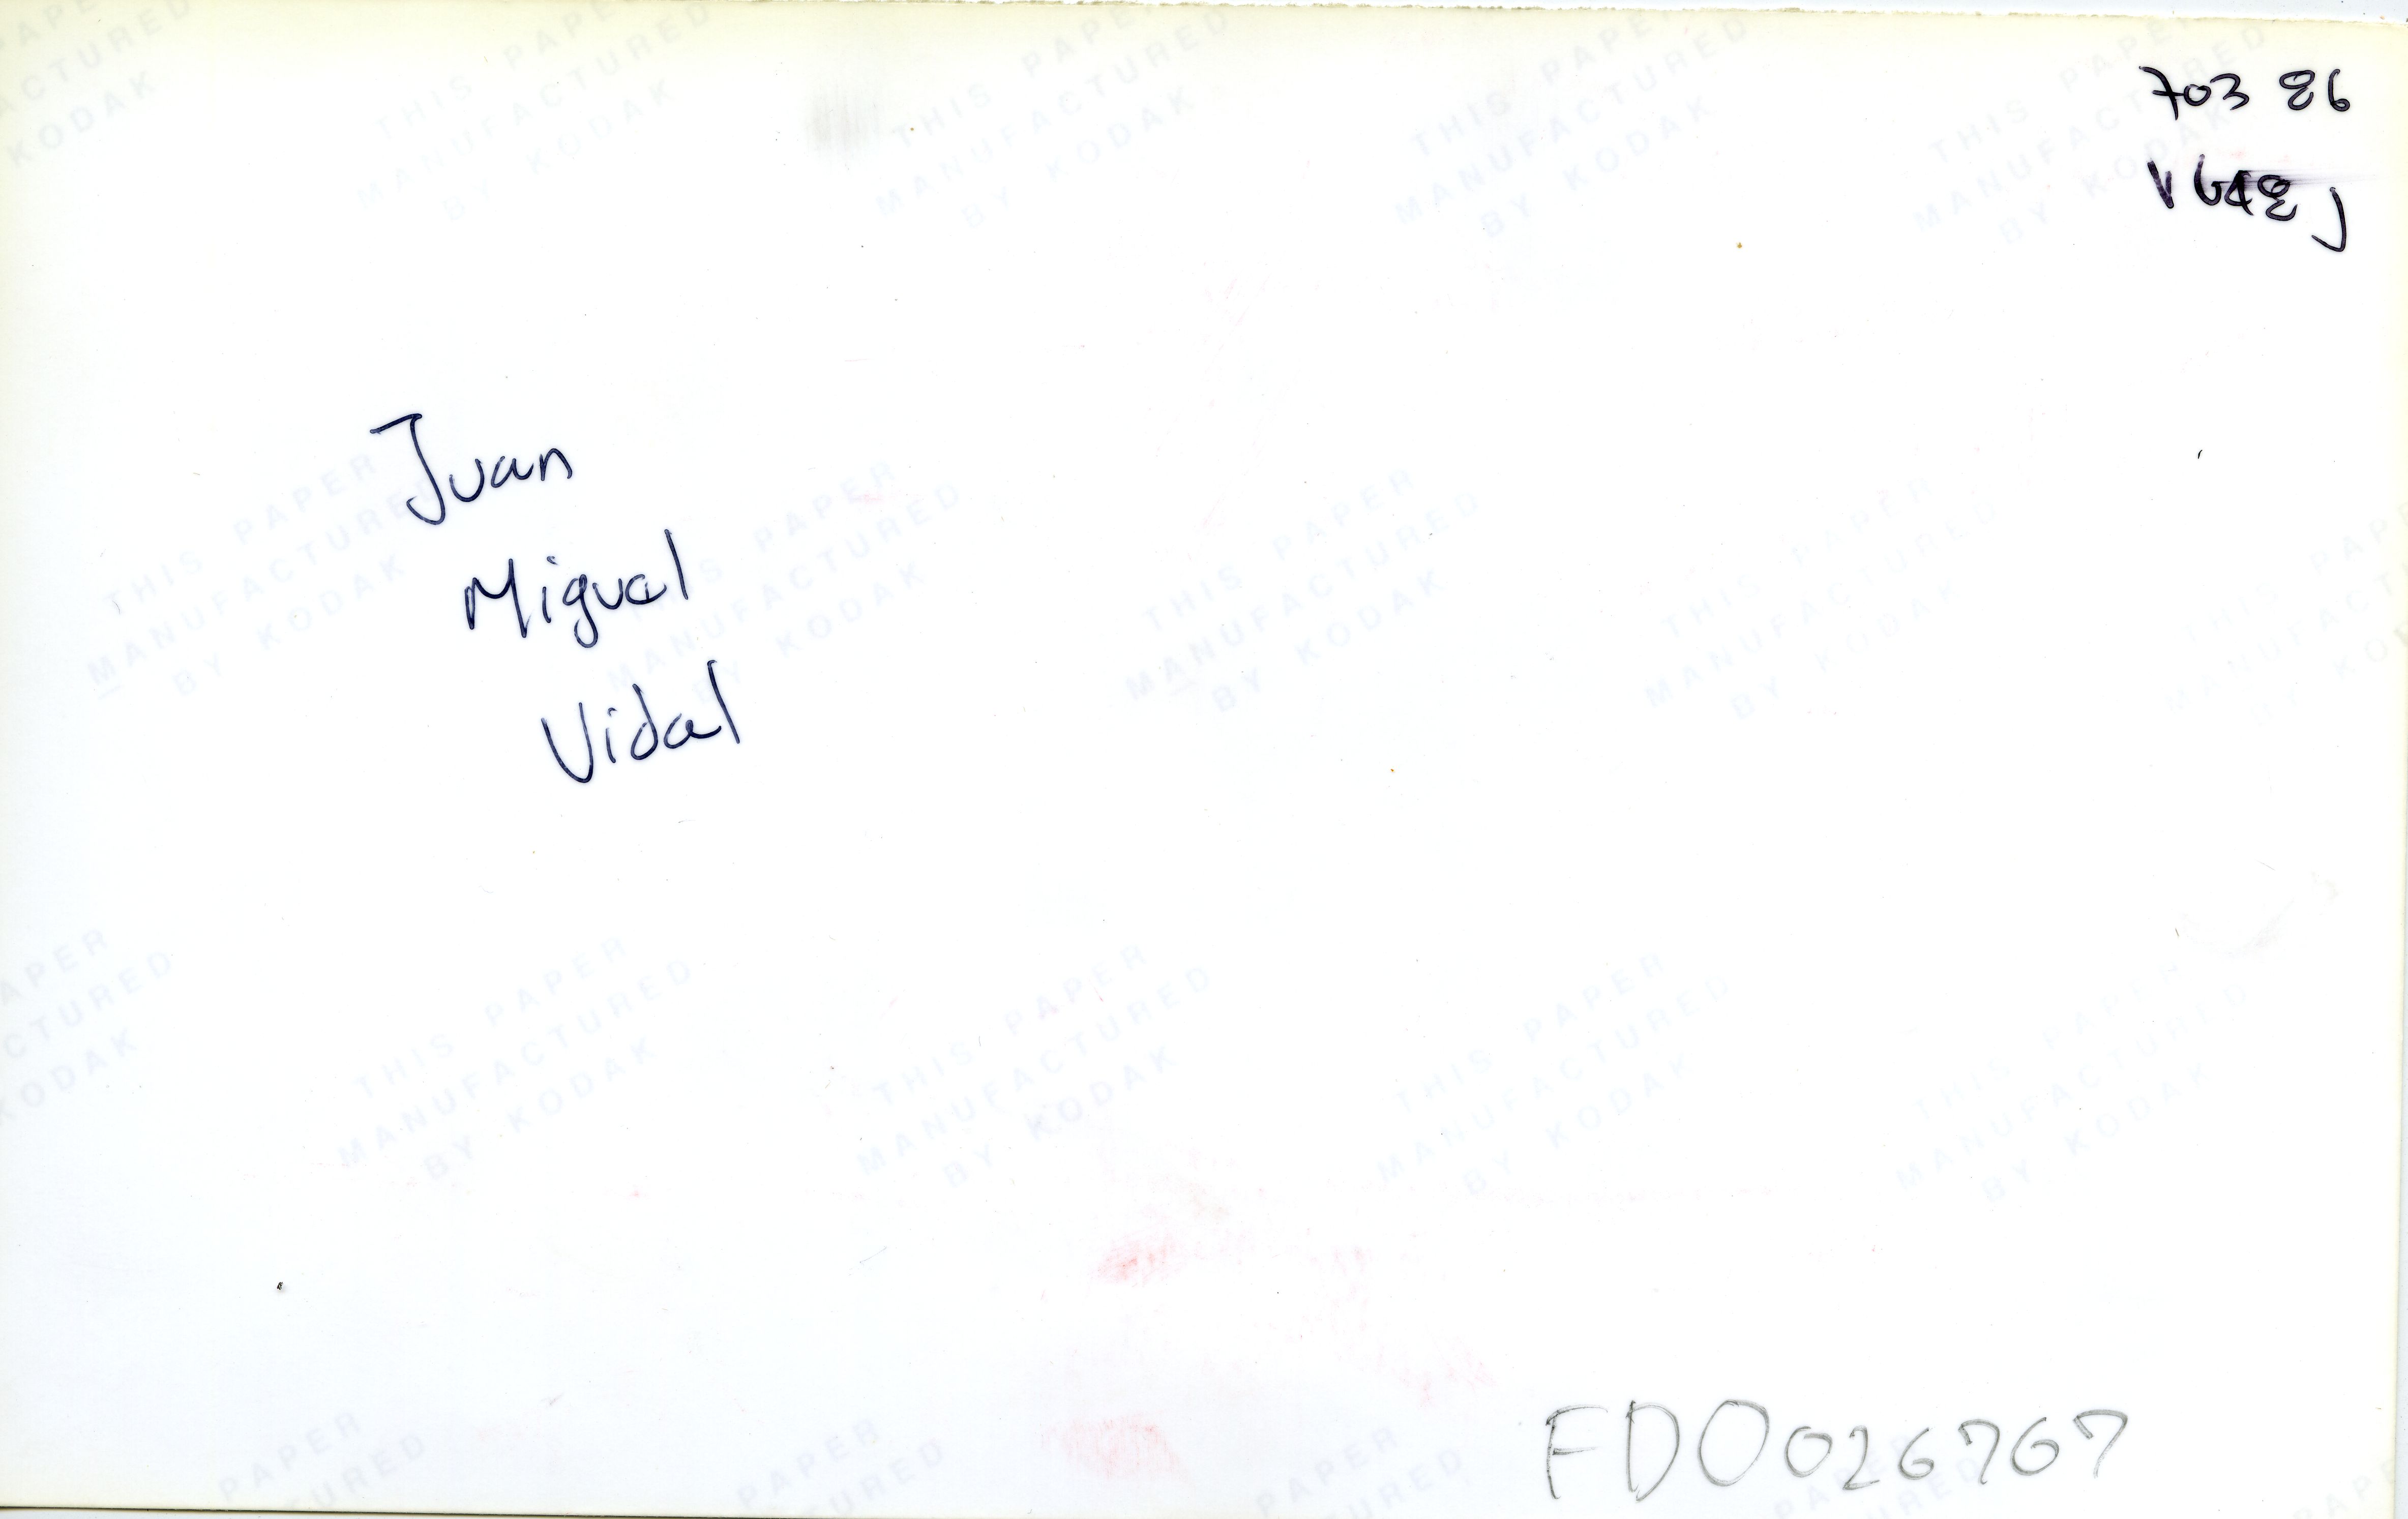 703 86
V648J
Juan
Migual
Vidal
FDO026767
THIS PAPER
MANUFACTURED
BY KODAK